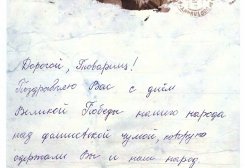 Дорогой, Товарищ!
Поздравляю Вас с днём
Великой Победы нашего народа
над фашистской чумой, которую
одержали Вы и наш народ